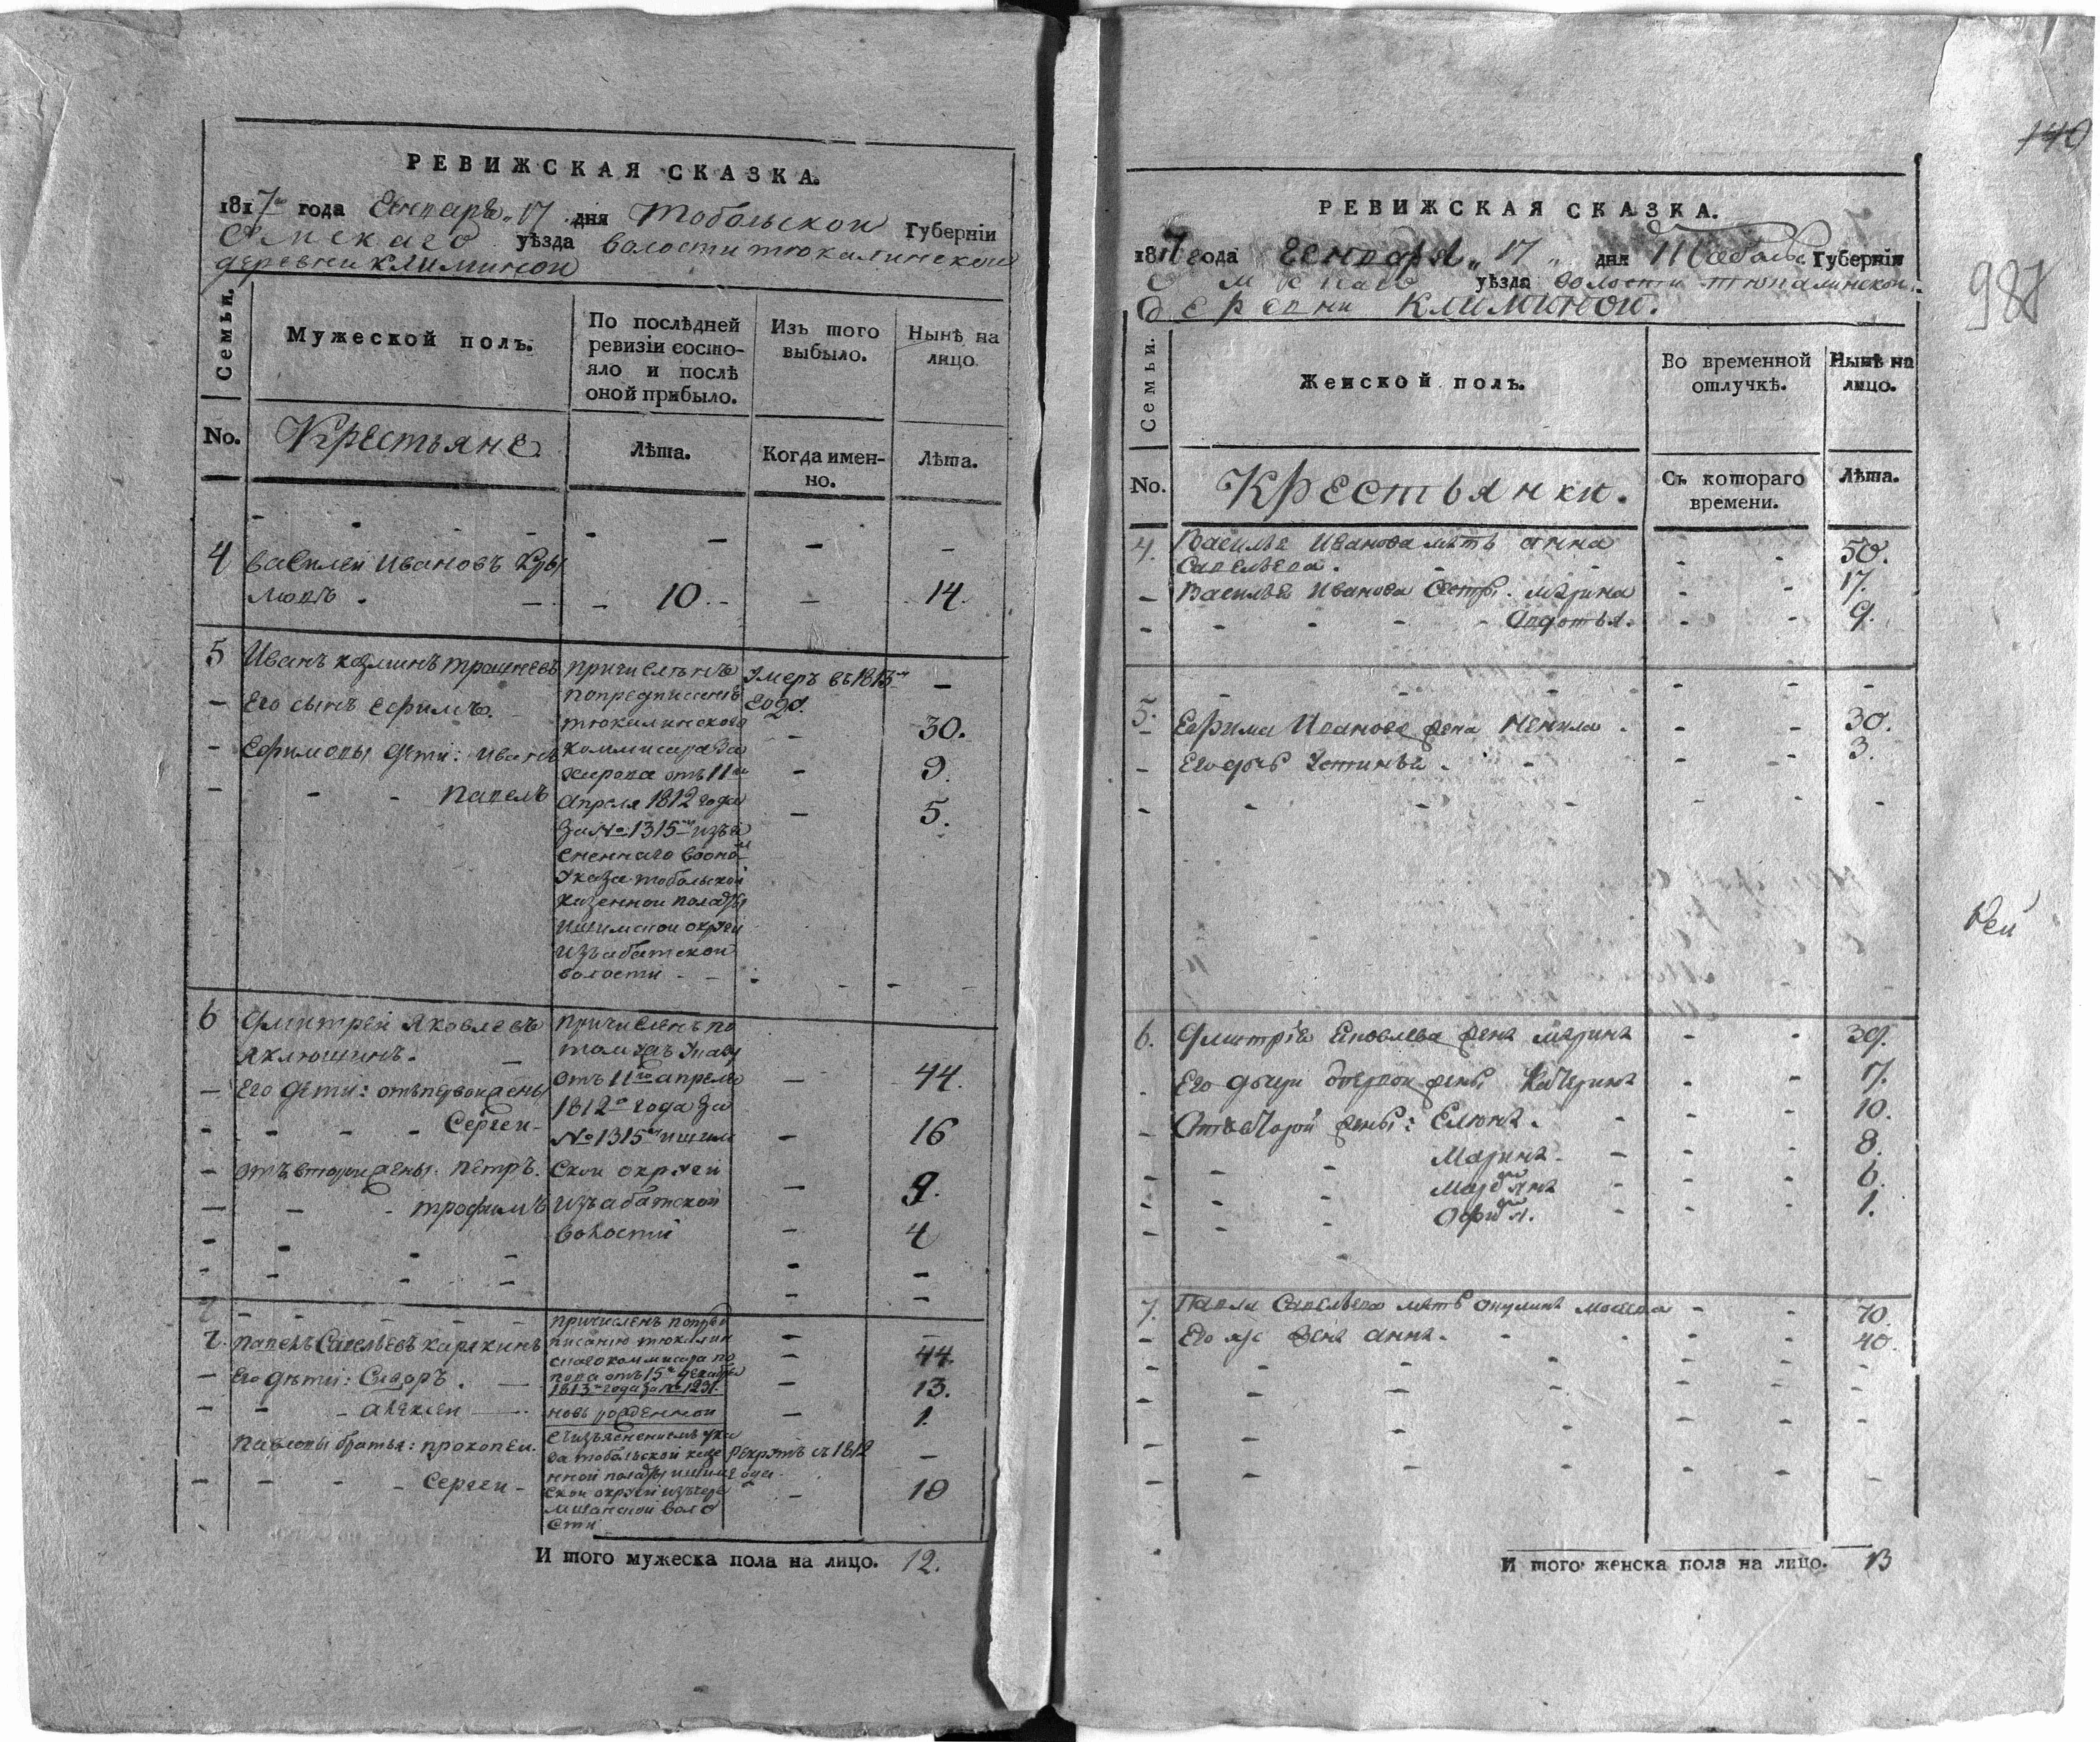 РЕВИЖСКАЯ СКАЗКА.
1817го года Генваря 17 дня Тобольской Губерніи
Омскаго уѣзда волости тюкалинской
деревни климиной
Семьи.
Мужеской полъ.
По послѣдней ревизіи состо-
яло и послѣ
оной прибыло.
Изъ того выбыло.
Нынѣ на лицо
No.
Крестьяне
Лѣта.
Когда имен-
но.
Лѣта.
4 василей Ивановъ
10. 14.
5 Иванъ козминъ
причисленъ
умеръ въ 1815м
году.
Его сынъ ефимъ.
попредписанію
тюкалинскова
30.
Ефимовы дѣти: иванъ
коммисара За
харова отъ 11го
9.
павелъ
апреля 1812 года
5.
За № 1315м изъя
сненнаго воономъ
Указа тобольской
казенной палаты
ишимской округи
изъабатской
волости
6 Дмитрей яковлевъ
яклюшинъ.
причисленъ по
томужъ Указу
отъ 11го апреля
44.
Его дѣти: отъпервойжены
1812го года За
Сергей
№ 1315м ишим
16
отъ второй жены: петръ.
ской округи
9.
трофимъ
изъабатской
волости
4
7. павелъ Савельевъ карякинъ
причисленъ попред
писанію тюкалин
скаго коммисара по
пова отъ 15го декабря
1813го года за № 1231.
44.
Его дѣти: Сидоръ.
13.
алексей
новь рожденной
1.
Павловы братья: прокопей.
съизъясненіемъ ука
за тобольской казе
нной палаты ишим
ской округи изъчере
мшанской воло
сти
рекрутъ съ 1812
года
Сергей
18
И того мужеска пола на лицо. 12.
140
987
РЕВИЖСКАЯ СКАЗКА.
1817 года Генваря 17 дня Тобольс Губерніи
Омскаго уѣзда волости тюкалинской
деревни климиной.
Семьи.
Женской полъ.
Во временной
отлучкѣ.
Нынѣ на
лицо.
No.
Крестьянки.
Съ котораго
времени.
Лѣта.
4. Василья Иванова мать анна
Савельева.
50.
Василья Иванова Сестры. марина
17.
авдотья.
9.
5. Ефима Иванова жена Ненила
30.
Его дочь Устинья.
3.
6. Дмитрія Яковлева жена марина
39.
Его дочери отпервой жены Катерина
17.
Отвторой жены: Елена.
10.
Марина.
8.
Марья
6.
Офимья.
1.
7. Павла Савельева мать окулина
70.
Его же жена анна.
40.
И того женска пола на лицо. 13